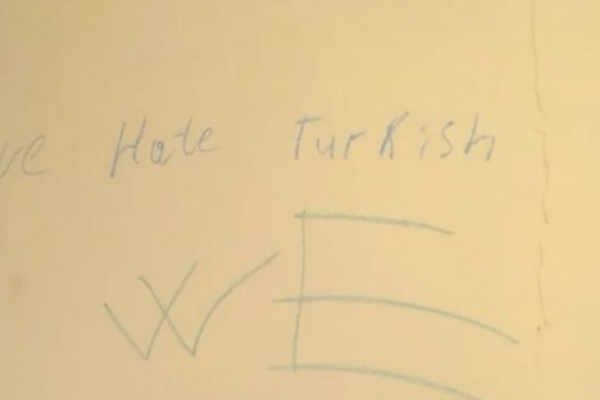 we Hate Turkish
WE